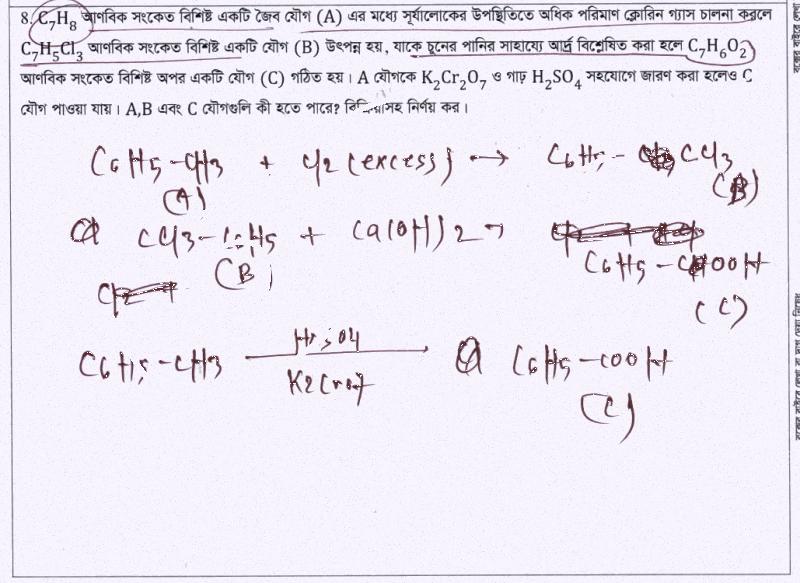 8. C₇H₈ আণবিক সংকেত বিশিষ্ট একটি জৈব যৌগ (A) এর মধ্যে সূর্যালোকের উপস্থিতিতে অধিক পরিমাণ ক্লোরিন গ্যাস চালনা করলে
C₇H₅Cl₃ আণবিক সংকেত বিশিষ্ট একটি যৌগ (B) উৎপন্ন হয়, যাকে চুনের পানির সাহায্যে আর্দ্র বিশ্লেষিত করা হলে C₇H₆O₂
আণবিক সংকেত বিশিষ্ট অপর একটি যৌগ (C) গঠিত হয়। A যৌগকে K₂Cr₂O₇ ও গাঢ় H₂SO₄ সহযোগে জারণ করা হলেও C
যৌগ পাওয়া যায়। A,B এবং C যৌগগুলি কী হতে পারে? সহ নির্ণয় কর।
C6H5-CH3 + Cl2 (excess) → C6H5- CCl3
(A) (B)
CCl3-C6H5 + Ca(OH)2 →
C6H5-COOH
(B) (C)
C6H5-CH3 C6H5-COOH
(C)